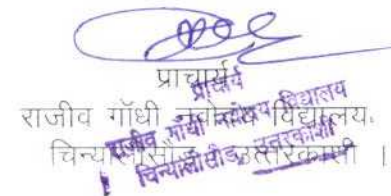 प्राचार्य
राजीव गॉधी नवोदय विद्यालय,
चिन्यालीसौड़, उत्तरकाशी ।
प्राचार्य
राजीव गांधी नवोदय विद्यालय
चिन्यालीसौड़, उत्तरकाशी